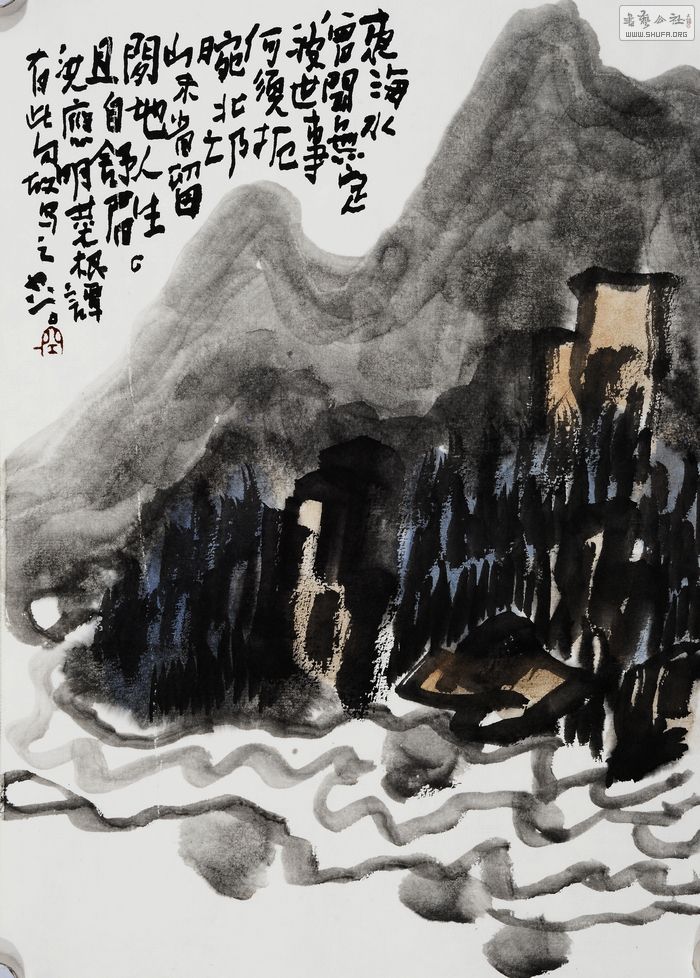 東海水
曾聞無定
波世事
何須扼
腕北邙
山未省留
閒地人生
且自舒眉
洪應明菜根譚
有此句故写之
書藝公社
WWW.SHUFA.ORG